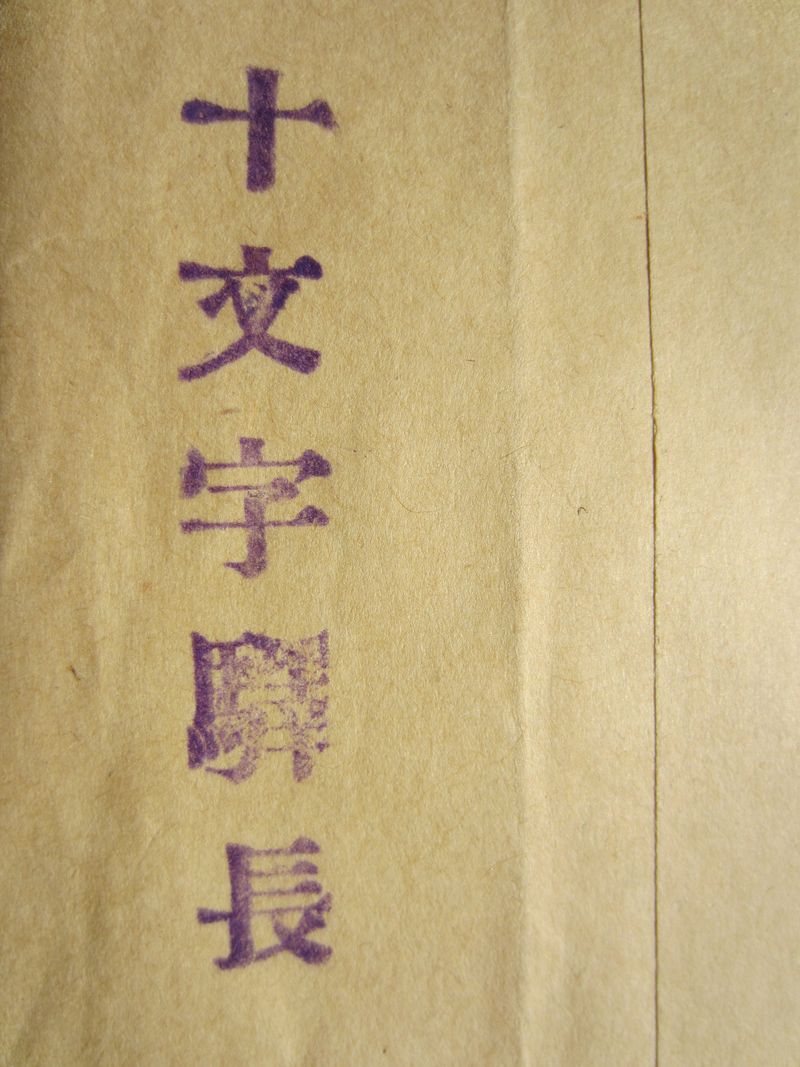 十文字驛長